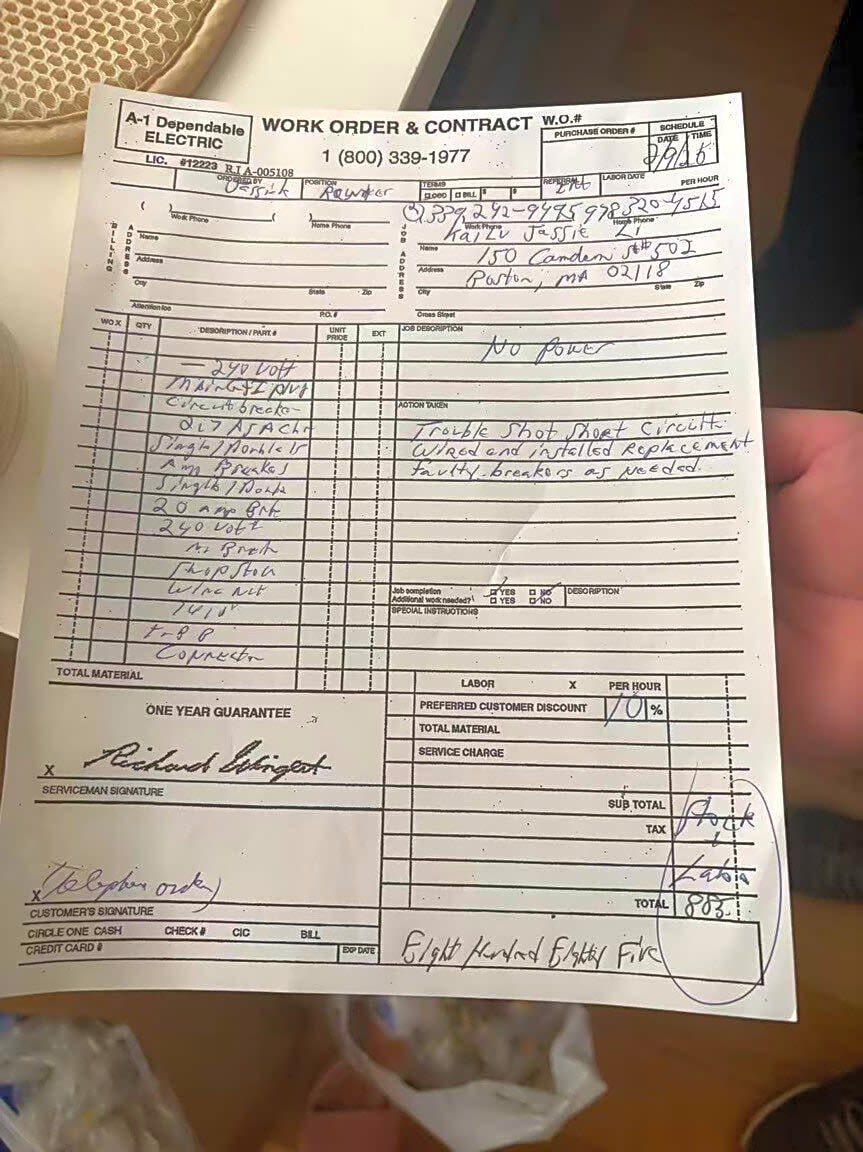 A-1 Dependable
ELECTRIC
WORK ORDER & CONTRACT
W.O.#
PURCHASE ORDER #
SCHEDULE
DATE TIME
2/9/25
1 (800) 339-1977
LIC. #12223 RIA-005108
ORDERED BY
POSITION
TERMS
COD BILL
REFERRAL
LABOR DATE
PER HOUR
( ) Work Phone
( ) Home Phone
Work Phone
Home Phone
BILLING ADDRESS
JOB ADDRESS
Name
Address
City State Zip
Attention to:
P.O. #
Kaili Jassie Li
Name
150 Camden St # 502
Address
Boston, MA 02118
City State Zip
Cross Street
WO X QTY DESCRIPTION / PART # UNIT PRICE EXT
240 Volt
Circuit breaker
Single / Double 15
Amp Breaker
Single / Double
20 Amp Brk
240 Volt
Wire Nut
Connector
TOTAL MATERIAL
JOB DESCRIPTION
No Power
ACTION TAKEN
Trouble Shot Short Circuit.
Wired and installed Replacement
faulty breakers as needed.
Job completion YES NO DESCRIPTION
Additional work needed? YES NO
SPECIAL INSTRUCTIONS
LABOR X PER HOUR
PREFERRED CUSTOMER DISCOUNT 10 %
TOTAL MATERIAL
SERVICE CHARGE
SUB TOTAL
TAX
Stock
+
Labor
TOTAL 885
Eight Hundred Eighty Five
ONE YEAR GUARANTEE
X Richard Wingert
SERVICEMAN SIGNATURE
X (Telephone order)
CUSTOMER'S SIGNATURE
CIRCLE ONE CASH CHECK # C/C BILL
CREDIT CARD # EXP DATE